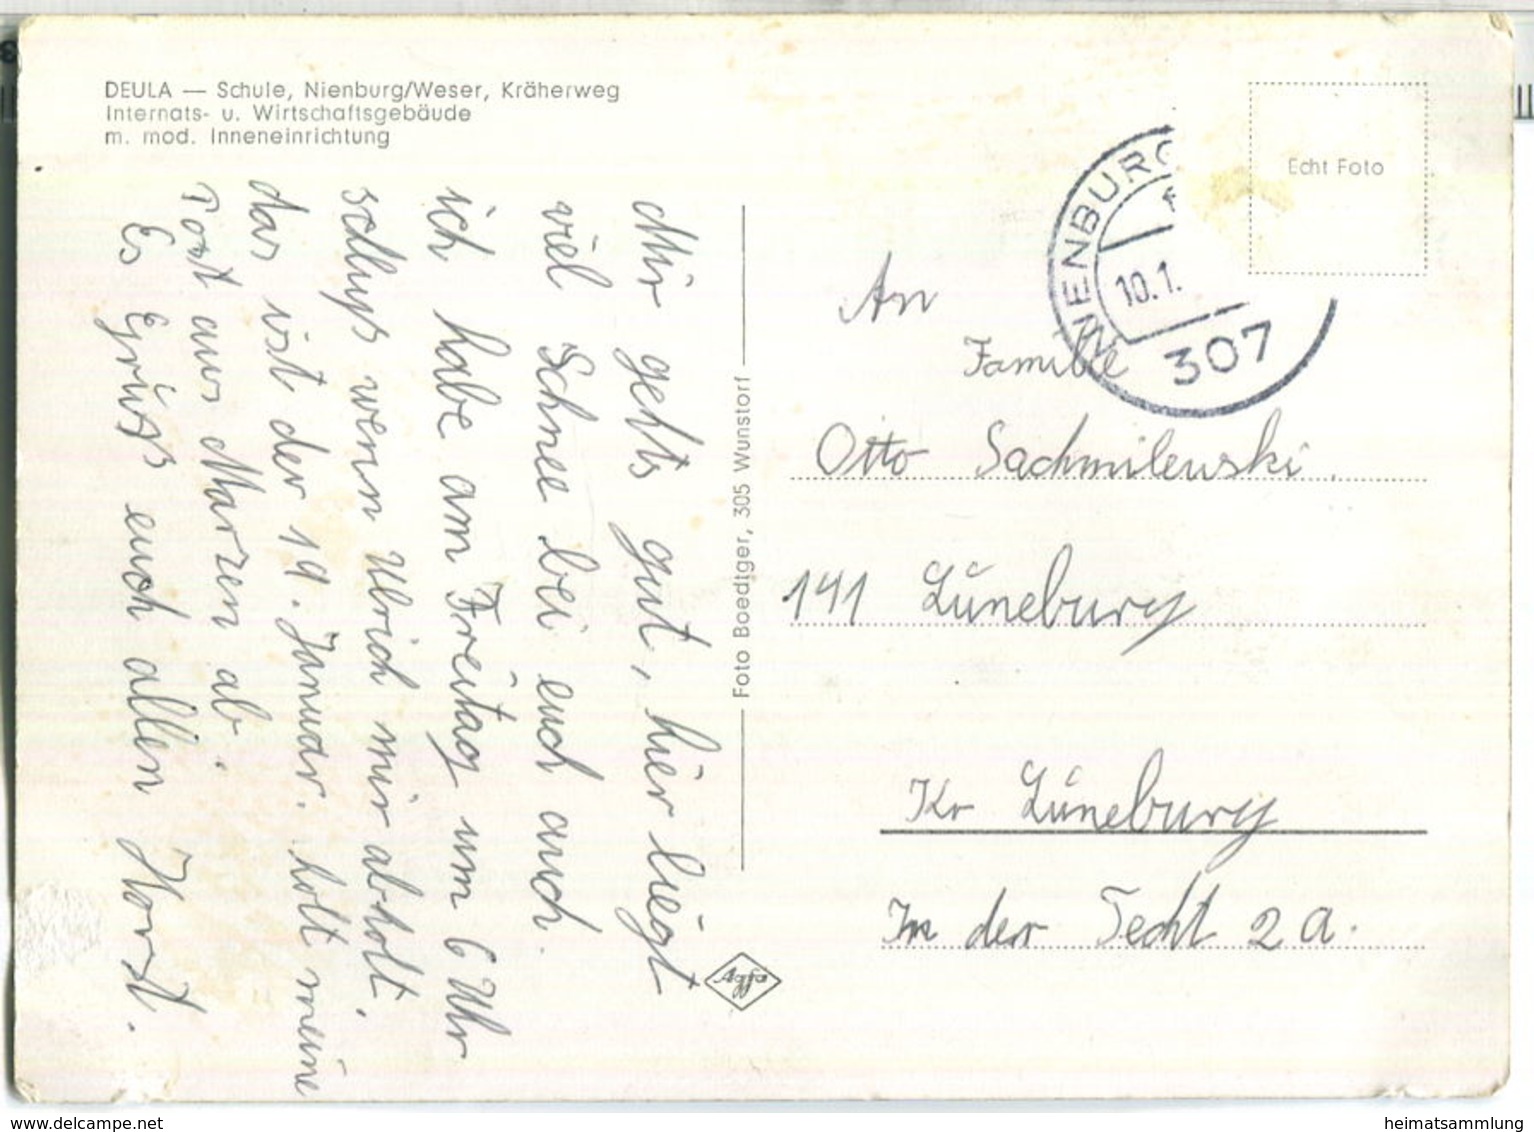 DEULA — Schule, Nienburg/Weser, Kräherweg
Internats- u. Wirtschaftsgebäude
m. mod. Inneneinrichtung
Mir gehts gut, hier liegt
viel Schnee bei euch auch.
ich habe am Freitag um 6 Uhr
schluß wenn Ulrich mir abholt.
das ist der 19. Januar. holt meine
Post aus Marzen ab.
Es grüßt euch allen Horst.
Foto Boedtger, 305 Wunstorf
Agfa
Echt Foto
NIENBURG
10.1.
307
An
Familie
Otto Sachmilewski.
141 Lüneburg
Kr Lüneburg
In der Techt 2a.
www.delcampe.net
heimatsammlung